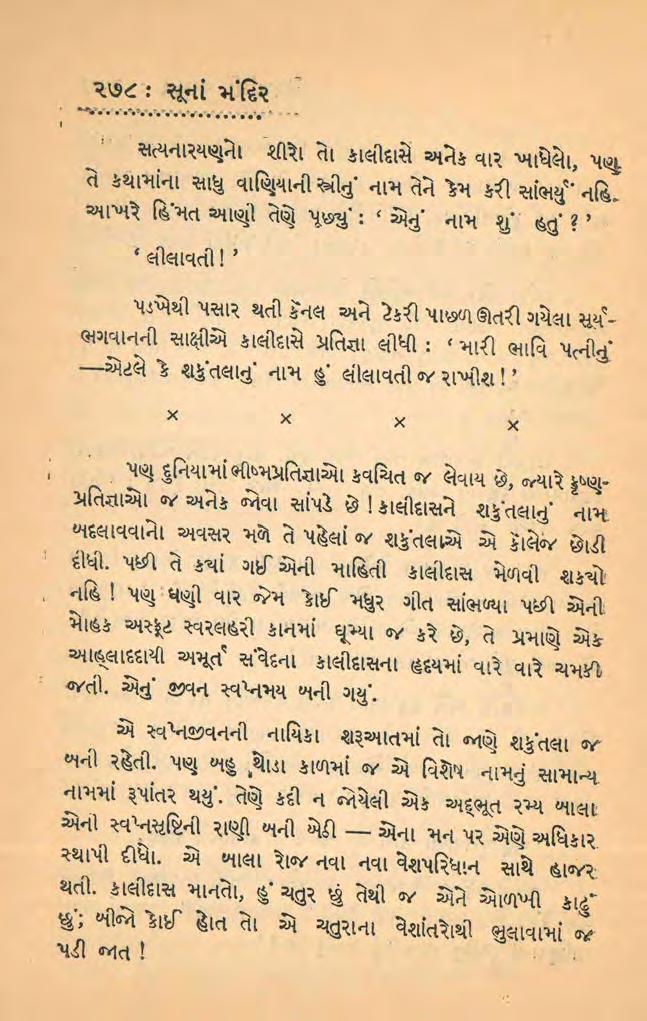 ૨૭૮ : સૂનાં મંદિર
સત્યનારાયણનો શીરો તો કાલીદાસે અનેક વાર ખાધેલો, પણ
તે કથામાંના સાધુ વાણિયાની સ્ત્રીનું નામ તેને કેમ કરી સાંભર્યું નહિ.
આખરે હિંમત આણી તેણે પૂછ્યું : ‘ એનું નામ શું હતું ? ’
‘ લીલાવતી ! ’
પડખેથી પસાર થતી કૅનલ અને ટેકરી પાછળ ઊતરી ગયેલા સૂર્ય-
ભગવાનની સાક્ષીએ કાલીદાસે પ્રતિજ્ઞા લીધી : ‘ મારી ભાવિ પત્નીનું
—એટલે કે શકુંતલાનું નામ હું લીલાવતી જ રાખીશ ! ’
× × × ×
પણ દુનિયામાં ભીષ્મપ્રતિજ્ઞાઓ કવચિત જ લેવાય છે, જ્યારે કૃષ્ણ-
પ્રતિજ્ઞાઓ જ અનેક જોવા સાંપડે છે ! કાલીદાસને શકુંતલાનું નામ
બદલાવવાનો અવસર મળે તે પહેલાં જ શકુંતલાએ એ કૉલેજ છોડી
દીધી. પછી તે ક્યાં ગઈ એની માહિતી કાલીદાસ મેળવી શક્યો
નહિ ! પણ ઘણી વાર જેમ કોઈ મધુર ગીત સાંભળ્યા પછી એની
મોહક અસ્ફૂટ સ્વરલહરી કાનમાં ઘૂમ્યા જ કરે છે, તે પ્રમાણે એક
આહ્લાદદાયી અમૂર્ત સંવેદના કાલીદાસના હૃદયમાં વારે વારે ચમકી
જતી. એનું જીવન સ્વપ્નમય બની ગયું.
એ સ્વપ્નજીવનની નાયિકા શરૂઆતમાં તો જાણે શકુંતલા જ
બની રહેતી. પણ બહુ થોડા કાળમાં જ એ વિશેષ નામનું સામાન્ય
નામમાં રૂપાંતર થયું. તેણે કદી ન જોયેલી એક અદ્ભૂત રમ્ય બાલા
એની સ્વપ્નસૃષ્ટિની રાણી બની બેઠી — એના મન પર એણે અધિકાર
સ્થાપી દીધો. એ બાલા રોજ નવા નવા વેશપરિધાન સાથે હાજર
થતી. કાલીદાસ માનતો, હું ચતુર છું તેથી જ એને ઓળખી કાઢું
છું; બીજો કોઈ હોત તો એ ચતુરાના વેશાંતરોથી ભુલાવામાં જ
પડી જાત !